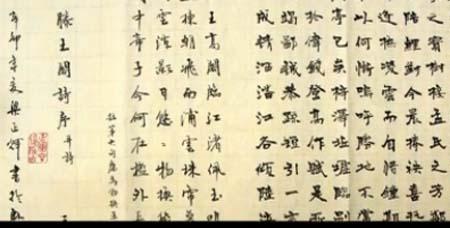 之寶樹接孟氏之芳
陪鯉對今晨捧袂喜
近撫凌雲而自惜鍾期
以何慚嗚呼勝地不常
亭已矣梓澤丘墟臨別
於偉餞登高作賦是所
竭鄙誠恭疏短引一言
成請灑潘江各傾陸海
王高閣臨江渚佩玉鳴
棟朝飛南浦雲珠簾暮
雲潭影日悠悠物換星
中帝子今何在檻外長
滕王閣詩序并詩 王
辛卯年夏梁正輝書於